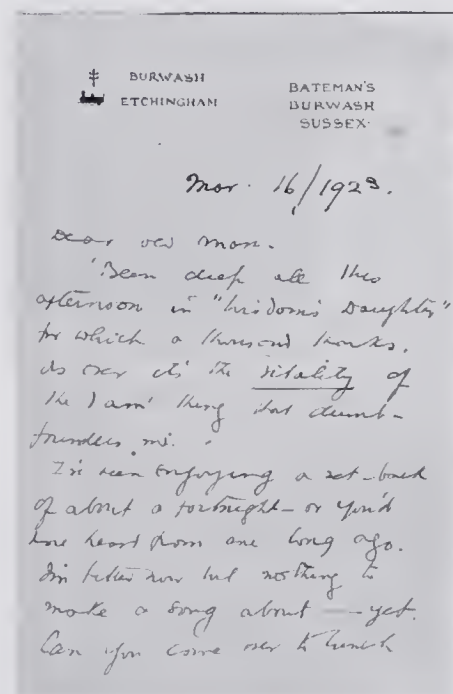 BURWASH
ETCHINGHAM
BATEMAN'S
BURWASH
SUSSEX.
Mar. 16/1923.
Dear old man.
'Been deep all this
afternoon in "Wisdom's Daughter"
for which a thousand thanks.
As ever it's the vitality of
the damn' thing that dumb-
founders me.
I've been enjoying a set-back
of about a fortnight - or you'd
have heard from me long ago.
I'm better now but nothing to
make a song about — yet.
Can you come over to lunch